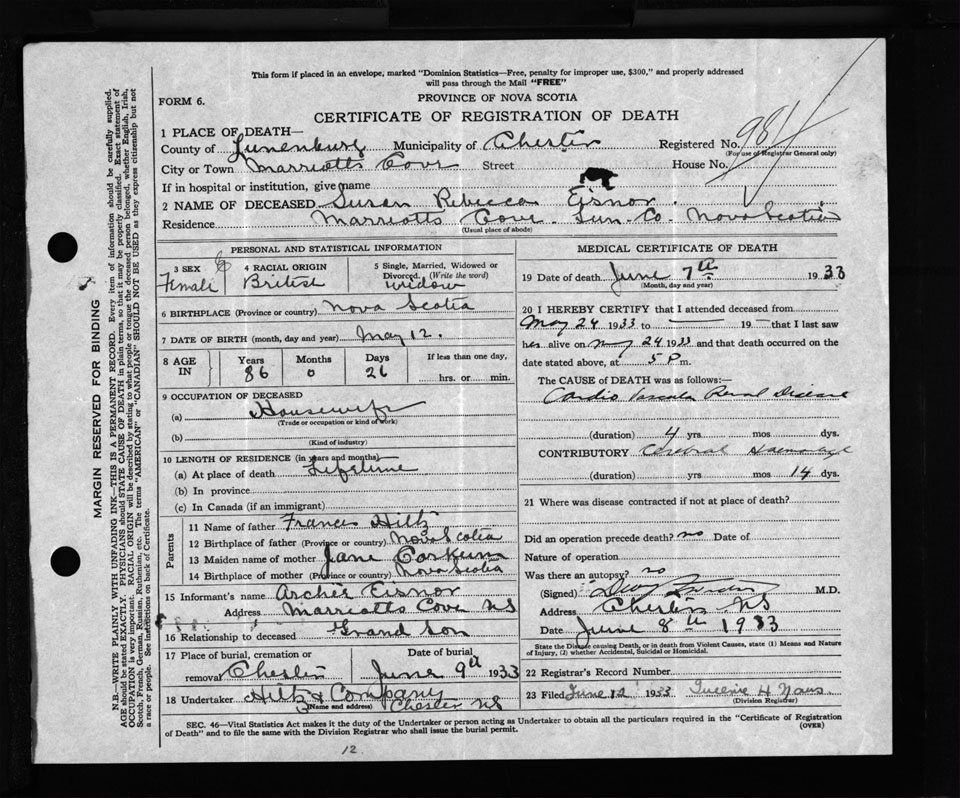 This form if placed in an envelope, marked "Dominion Statistics—Free, penalty for improper use, $300," and properly addressed
will pass through the Mail "FREE"
FORM 6.
PROVINCE OF NOVA SCOTIA
CERTIFICATE OF REGISTRATION OF DEATH
1 PLACE OF DEATH—
County of Lunenburg Municipality of Chester Registered No. 984
(For use of Registrar General only)
City or Town Marriotts Cove Street House No.
If in hospital or institution, give name
2 NAME OF DECEASED Susan Rebecca Eisnor
Residence Marriotts Cove Lun. Co. Nova Scotia
(Usual place of abode)
PERSONAL AND STATISTICAL INFORMATION
3 SEX Female
4 RACIAL ORIGIN British
5 Single, Married, Widowed or
Divorced. (Write the word)
widow
6 BIRTHPLACE (Province or country) Nova Scotia
7 DATE OF BIRTH (month, day and year) May 12.
8 AGE IN Years 86 Months 0 Days 26
If less than one day,
hrs. or min.
9 OCCUPATION OF DECEASED
(a) Housewife
(Trade or occupation or kind of work)
(b)
(Kind of industry)
10 LENGTH OF RESIDENCE (in years and months)—
(a) At place of death Lifetime
(b) In province
(c) In Canada (if an immigrant)
Parents
11 Name of father Frances Hiltz
12 Birthplace of father (Province or country) Nova Scotia
13 Maiden name of mother Jane Corkum
14 Birthplace of mother (Province or country) Nova Scotia
15 Informant's name Archer Eisnor
Address Marriotts Cove NS
16 Relationship to deceased Grand Son
17 Place of burial, cremation or
removal Chester
Date of burial
June 9th 1933
18 Undertaker Hiltz & Company
(Name and address) Chester NS
MEDICAL CERTIFICATE OF DEATH
19 Date of death June 7th 1933
(Month, day and year)
20 I HEREBY CERTIFY that I attended deceased from
May 24 1933 to — 19 — that I last saw
her alive on May 24 1933 and that death occurred on the
date stated above, at 5 P m.
The CAUSE OF DEATH was as follows:—
Cardio Vascular Renal Disease
(duration) 4 yrs mos dys.
CONTRIBUTORY Cerebral Haemorhage
(duration) yrs mos 14 dys.
21 Where was disease contracted if not at place of death?
Did an operation precede death? no Date of
Nature of operation
Was there an autopsy? no
(Signed) M.D.
Address Chester NS
Date June 8th 1933
State the Disease causing Death, or in death from Violent Causes, state (1) Means and Nature
of Injury, (2) whether Accidental, Suicidal or Homicidal.
22 Registrar's Record Number
23 Filed June 12 1933 H
(Division Registrar)
SEC. 46—Vital Statistics Act makes it the duty of the Undertaker or person acting as Undertaker to obtain all the particulars required in the "Certificate of Registration
of Death" and to file the same with the Division Registrar who shall issue the burial permit.
(OVER)
12
MARGIN RESERVED FOR BINDING
N.B.—WRITE PLAINLY WITH UNFADING INK—THIS IS A PERMANENT RECORD. Every item of information should be carefully supplied.
AGE should be stated EXACTLY. PHYSICIANS should STATE CAUSE OF DEATH in plain terms, so that it may be properly classified. Exact statement of
OCCUPATION is very important. RACIAL ORIGIN will be described by stating to what people or tongue the deceased person belonged, whether English, Irish,
Scotch, French, German, Russian, Ruthenian, etc. The terms "AMERICAN" or "CANADIAN" SHOULD NOT BE USED as they express citizenship but not
a race or people. See instructions on back of Certificate.